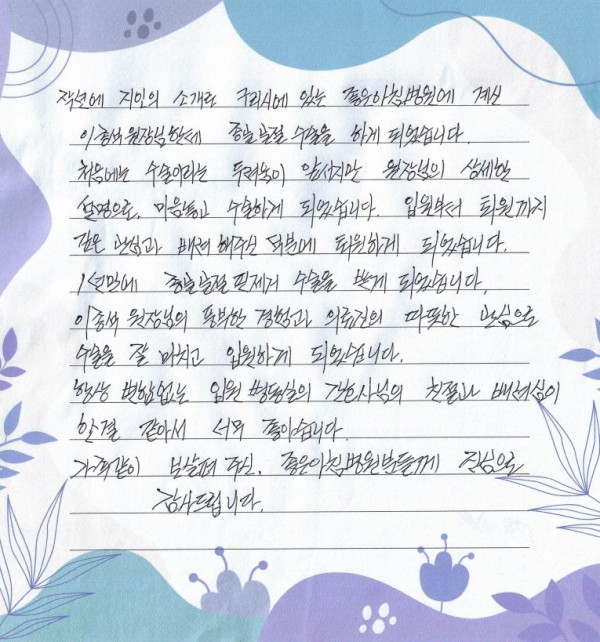 작년에 지인의 소개로 구리시에 있는 좋은아침병원에 계신
이종서 원장님한테 종골골절 수술을 하게 되었습니다.
처음에는 수술이라는 두려움이 앞서지만 원장님의 상세한
설명으로, 마음놓고 수술하게 되었습니다. 입원부터 퇴원까지
깊은 관심과 배려 해주신 덕분에 퇴원하게 되었습니다.
1년만에 종골골절 핀제거 수술을 받게 되었습니다.
이종서 원장님의 풍부한 경험과 의료진의 따뜻한 관심으로
수술을 잘 마치고 입원하게 되었습니다.
항상 변함없는 입원 병동실의 간호사님의 친절과 배려심이
한결 같아서 너무 좋아습니다.
가족같이 보살펴 주신, 좋은아침병원분들께 진심으로
감사드립니다.